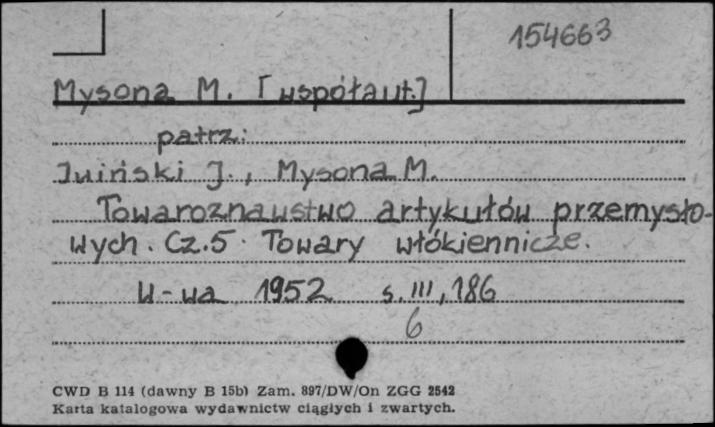 154663
Mysona M. [współaut.]
patrz:
Iwiński J., Mysona M.
Towaroznawstwo artykułów przemysło-
wych. Cz.5. Towary włókiennicze.
W-wa 1952 s. III, 186
6
CWD B 114 (dawny B 15b) Zam. 897/DW/On ZGG 2542
Karta katalogowa wydawnictw ciągłych i zwartych.